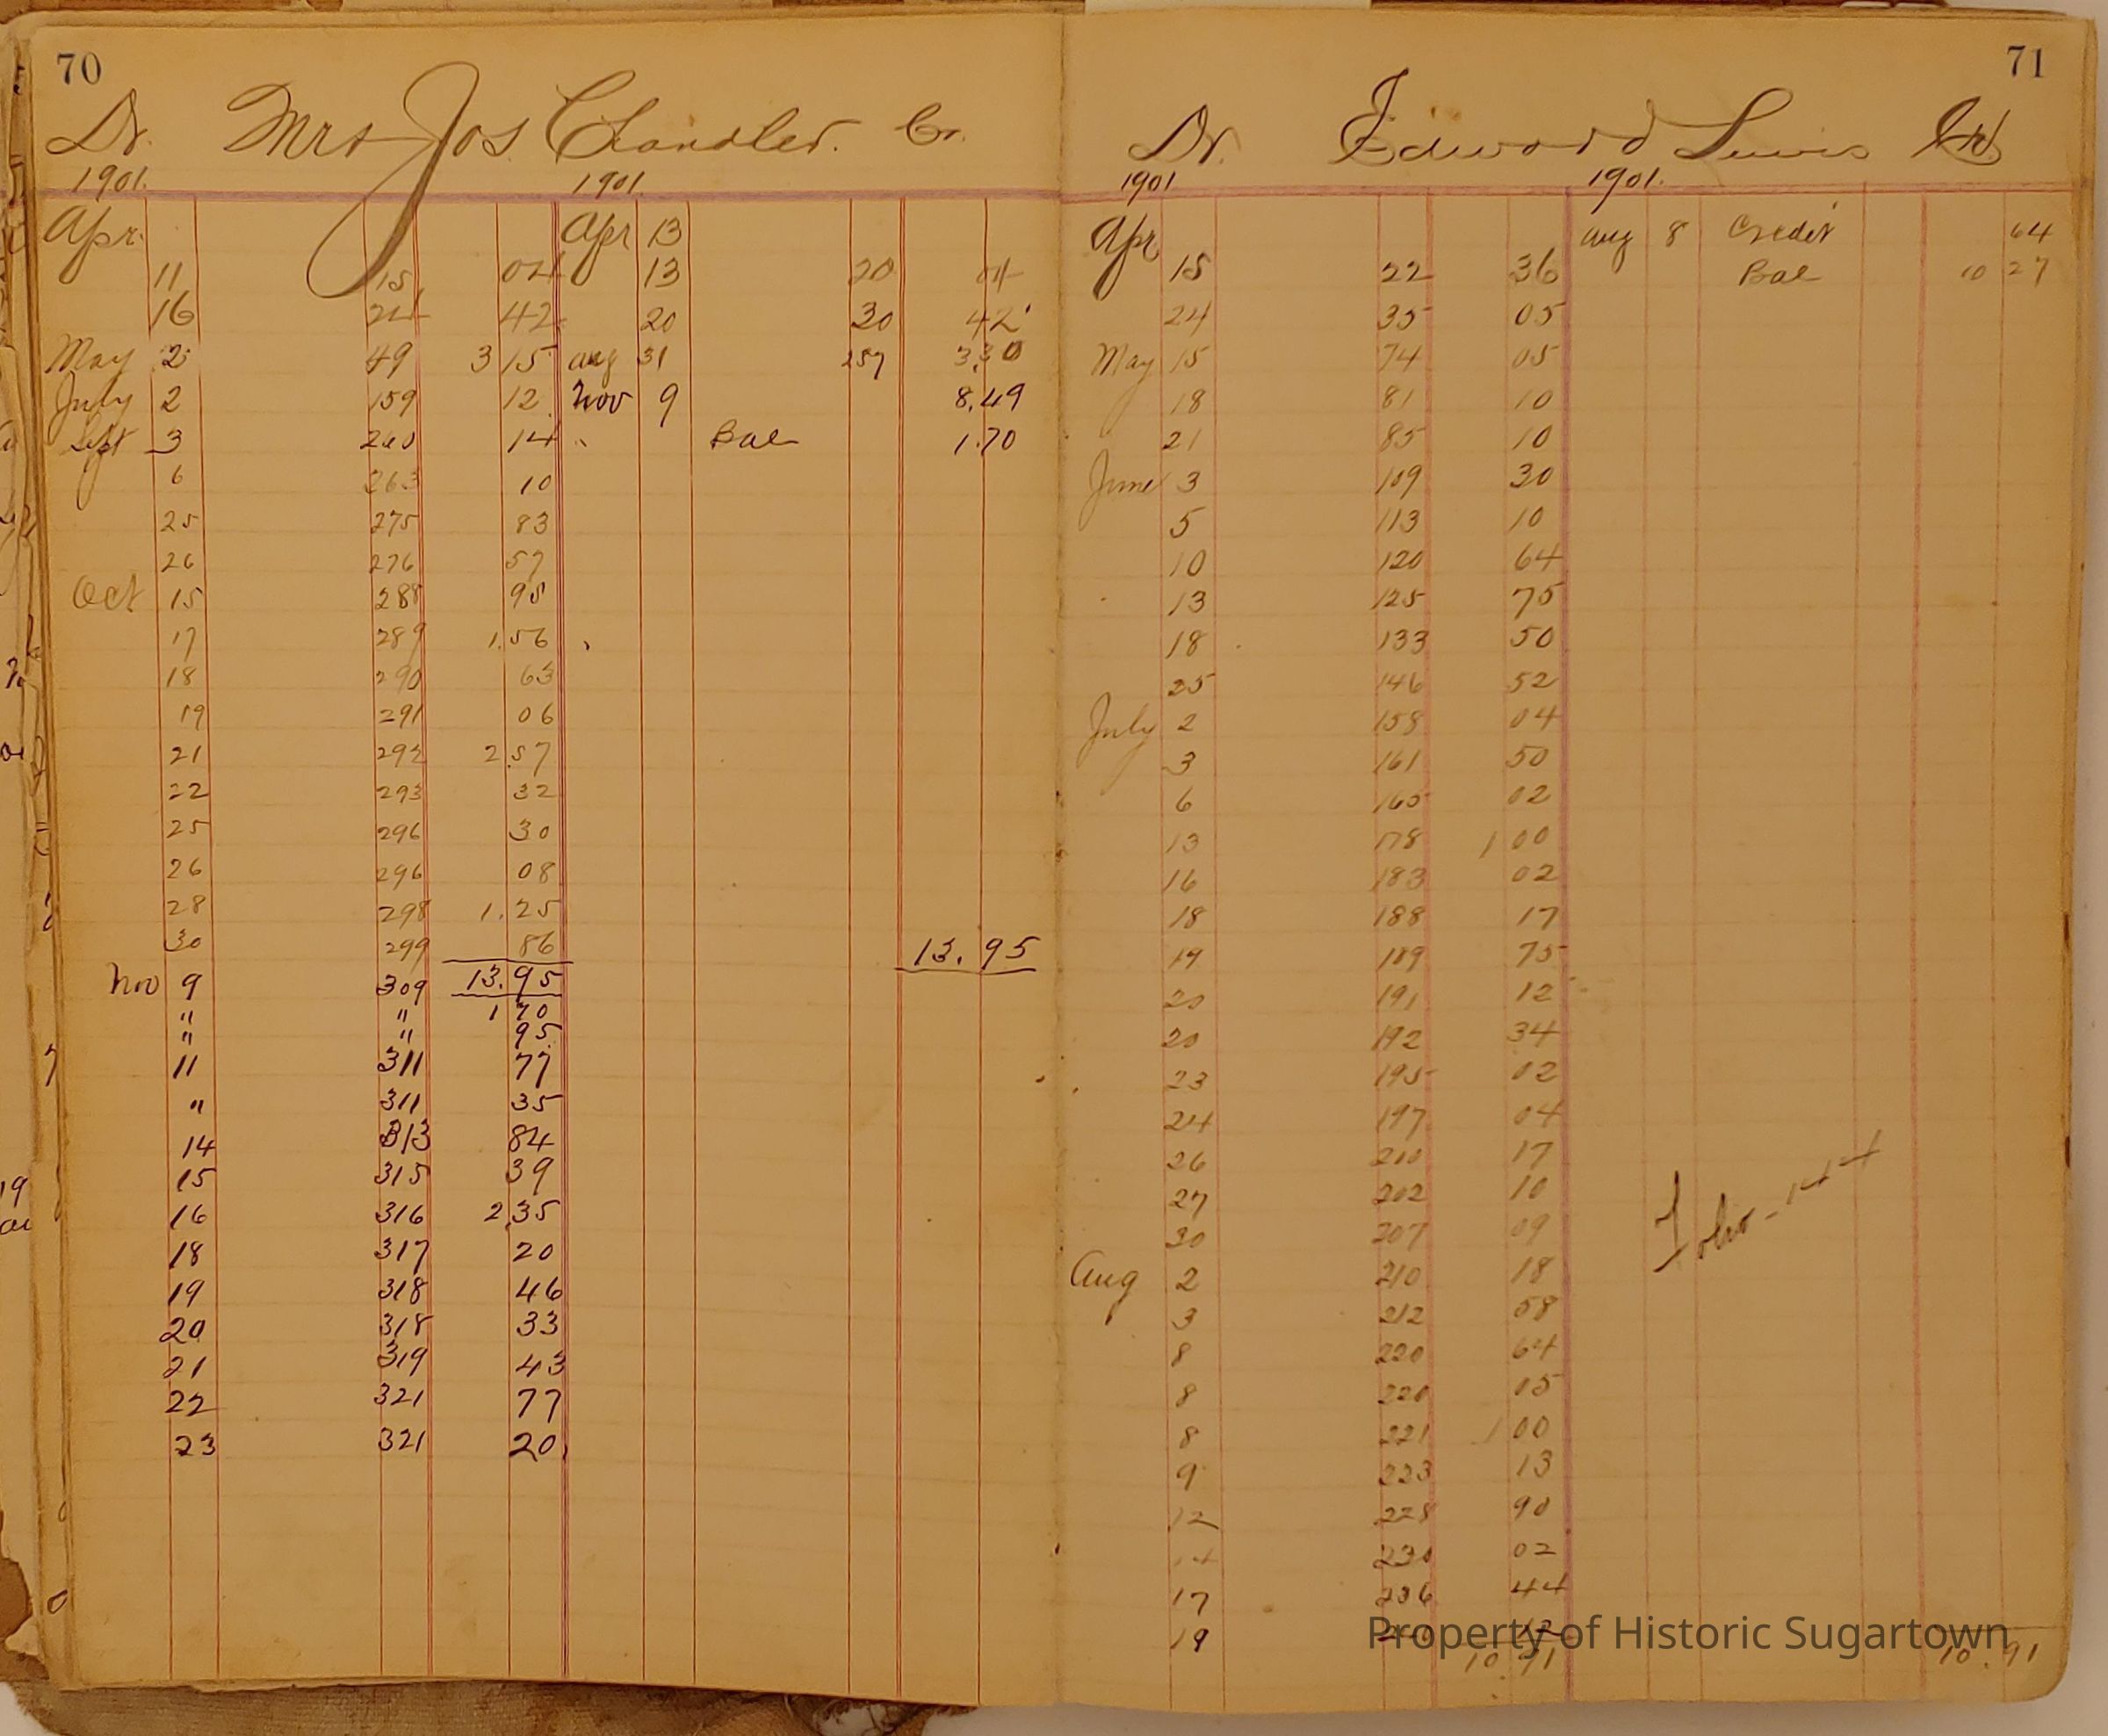 70
Dr. Mrs Jos Chandler. Cr.
1901. 1901.
Apr. Apr 13
11 15 04 13 20 04
16 24 42 20 30 42
May 2 49 3 15 Aug 31 257 3.30
July 2 159 12 Nov 9 8.49
Sept 3 260 14 " Bal 1.70
6 263 10
25 275 83
26 276 57
Oct 15 288 95
17 289 1.56
18 290 63
19 291 06
21 292 2.57
22 293 32
25 296 30
26 296 08
28 298 1.25
30 299 86 13.95
Nov 9 309 13.95
" " 1 70
" " 95
11 311 77
" 311 35
14 313 84
15 315 39
16 316 2.35
18 317 20
19 318 46
20 318 33
21 319 43
22 321 77
23 321 20
71
Dr. Edward Lewis Cr
1901 1901.
Apr Aug 8 Credit 64
15 22 36 Bal 10 27
24 35 05
May 15 74 05
18 81 10
21 85 10
June 3 109 30
5 113 10
10 120 64
13 125 75
18 133 50
25 146 52
July 2 158 04
3 161 50
6 165 02
13 178 1 00
16 183 02
18 188 17
19 189 75
20 191 12
20 192 34
23 195 02
24 197 04
26 200 17
27 202 10
30 207 09
Folio-144
Aug 2 210 18
3 212 58
8 220 64
8 220 15
8 221 1 00
9 223 13
12 228 90
14 230 02
17 236 44
19 12
10.91 10.91
Property of Historic Sugartown